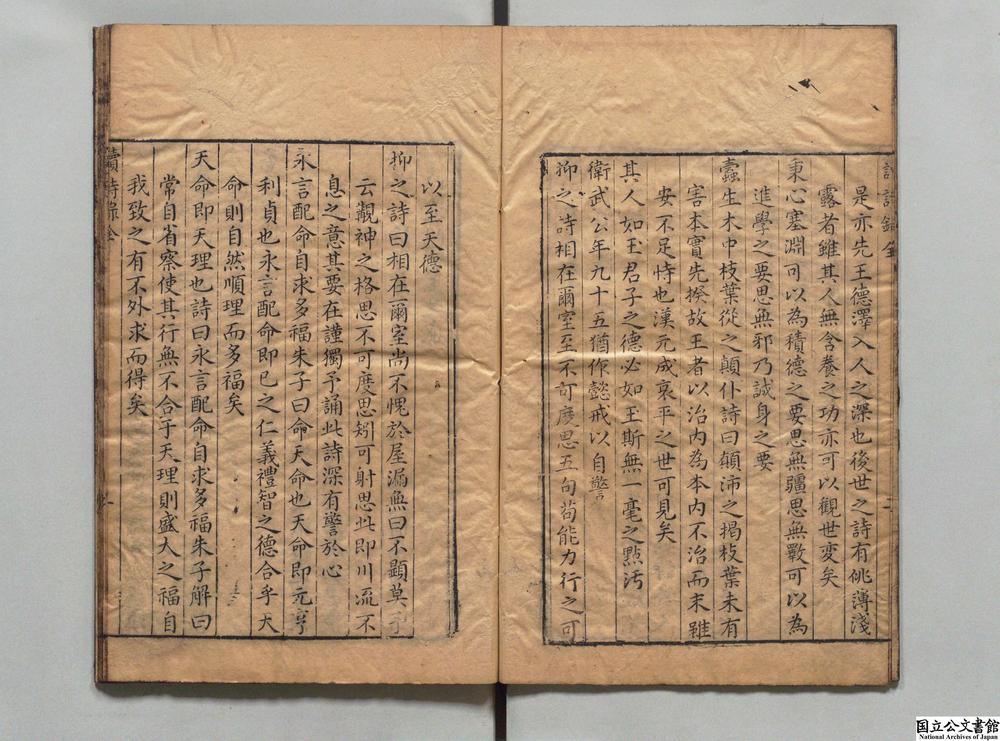 是亦先王德澤入人之深也後世之詩有佻薄淺
露者雖其人無含養之功亦可以觀世變矣
秉心塞淵可以為積德之要思無疆思無斁可以為
進學之要思無邪乃誠身之要
蠹生木中枝葉從之顛仆詩曰顛沛之揭枝葉未有
害本實先揆故王者以治内為本内不治而末雖
安不足恃也漢元成哀平之世可見矣
其人如玉君子之德必如玉斯無一毫之點汚
衛武公年九十五猶作懿戒以自警
抑之詩相在爾室至不可度思五句苟能力行之可
以至天德
抑之詩曰相在爾室尚不愧於屋漏無曰不顯莫予
云覯神之格思不可度思矧可射思此即川流不
息之意其要在謹獨予誦此詩深有警於心
永言配命自求多福朱子曰命天命也天命即元亨
利貞也永言配命即己之仁義禮智之德合乎天
命則自然順理而多福矣
天命即天理也詩曰永言配命自求多福朱子解曰
常自省察使其行無不合于天理則盛大之福自
我致之有不外求而得矣
讀詩錄全
国立公文書館
National Archives of Japan